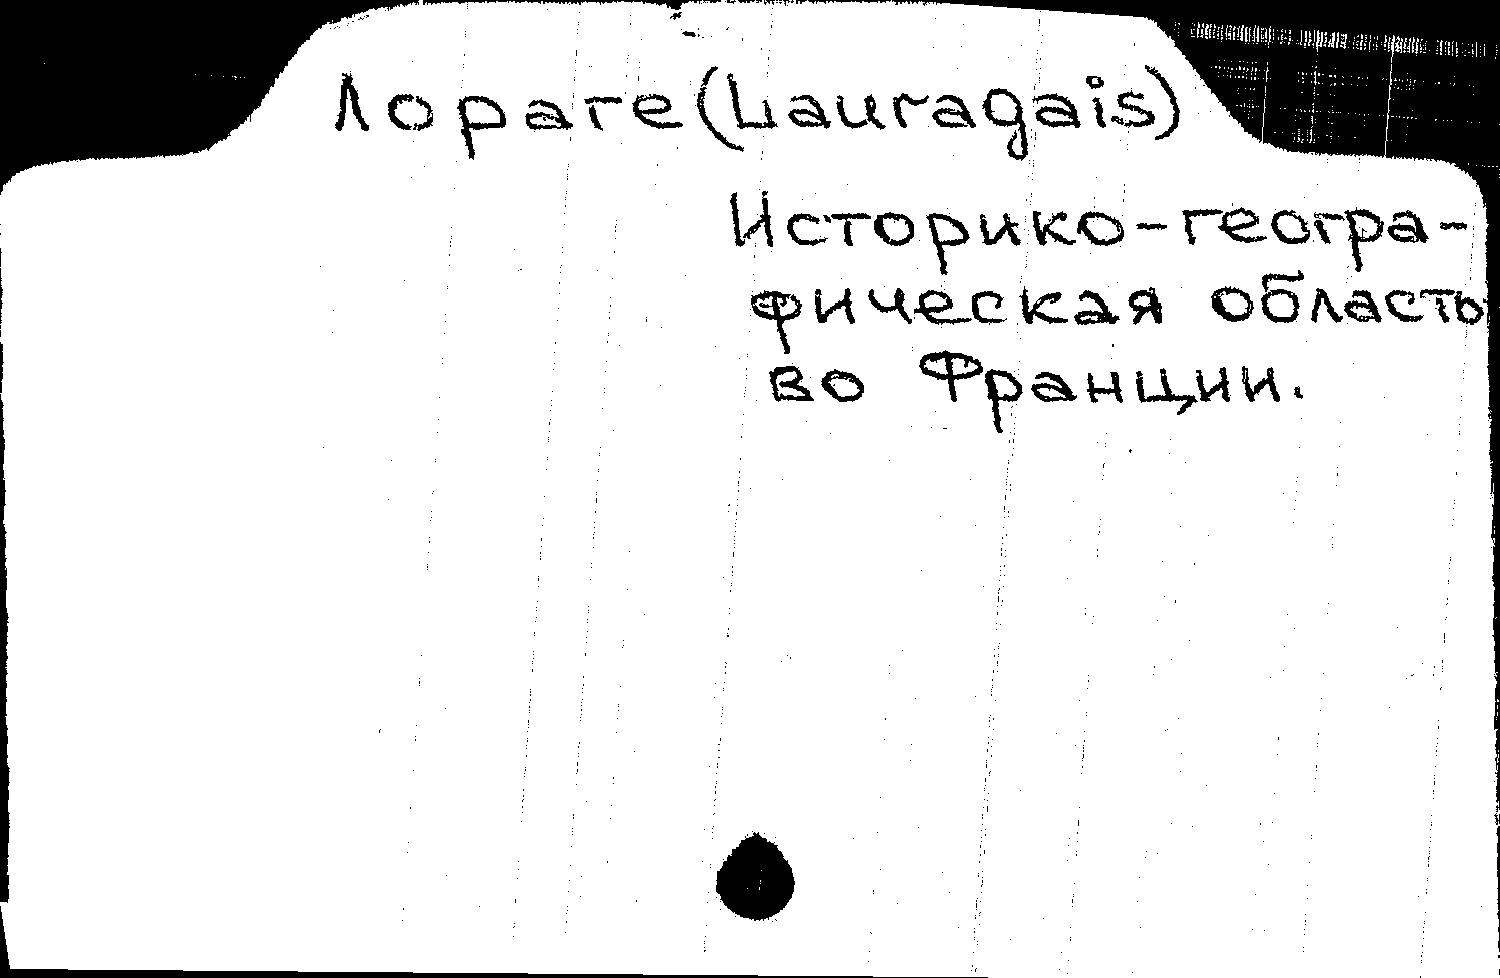 Лораге (Lauragais)
Историко-геогра-
фическая область
во Франции.